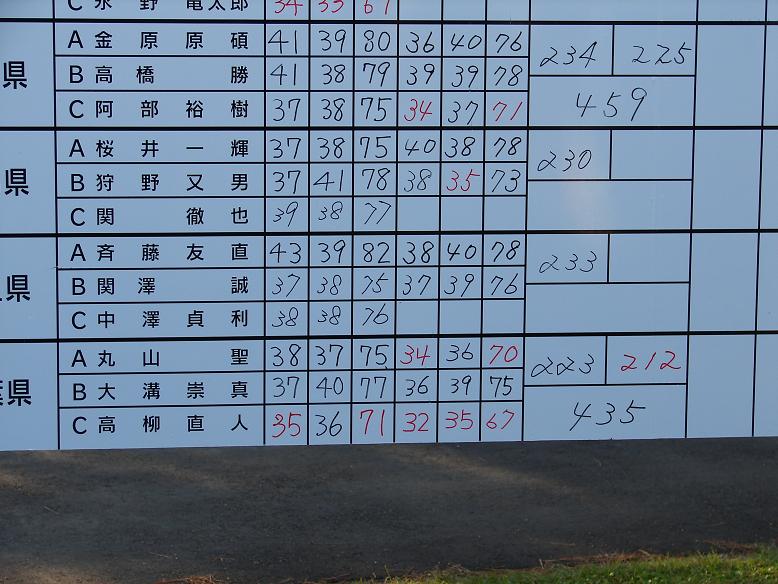 C 永野竜太郎 34 33 67
A 金原原碩 41 39 80 36 40 76 234 225
県 B 高橋勝 41 38 79 39 39 78
C 阿部裕樹 37 38 75 34 37 71 459
A 桜井一輝 37 38 75 40 38 78 230
県 B 狩野又男 37 41 78 38 35 73
C 関徹也 39 38 77
A 斉藤友直 43 39 82 38 40 78 233
県 B 関澤誠 37 38 75 37 39 76
C 中澤貞利 38 38 76
A 丸山聖 38 37 75 34 36 70 223 212
葉県 B 大溝崇真 37 40 77 36 39 75
C 高柳直人 35 36 71 32 35 67 435